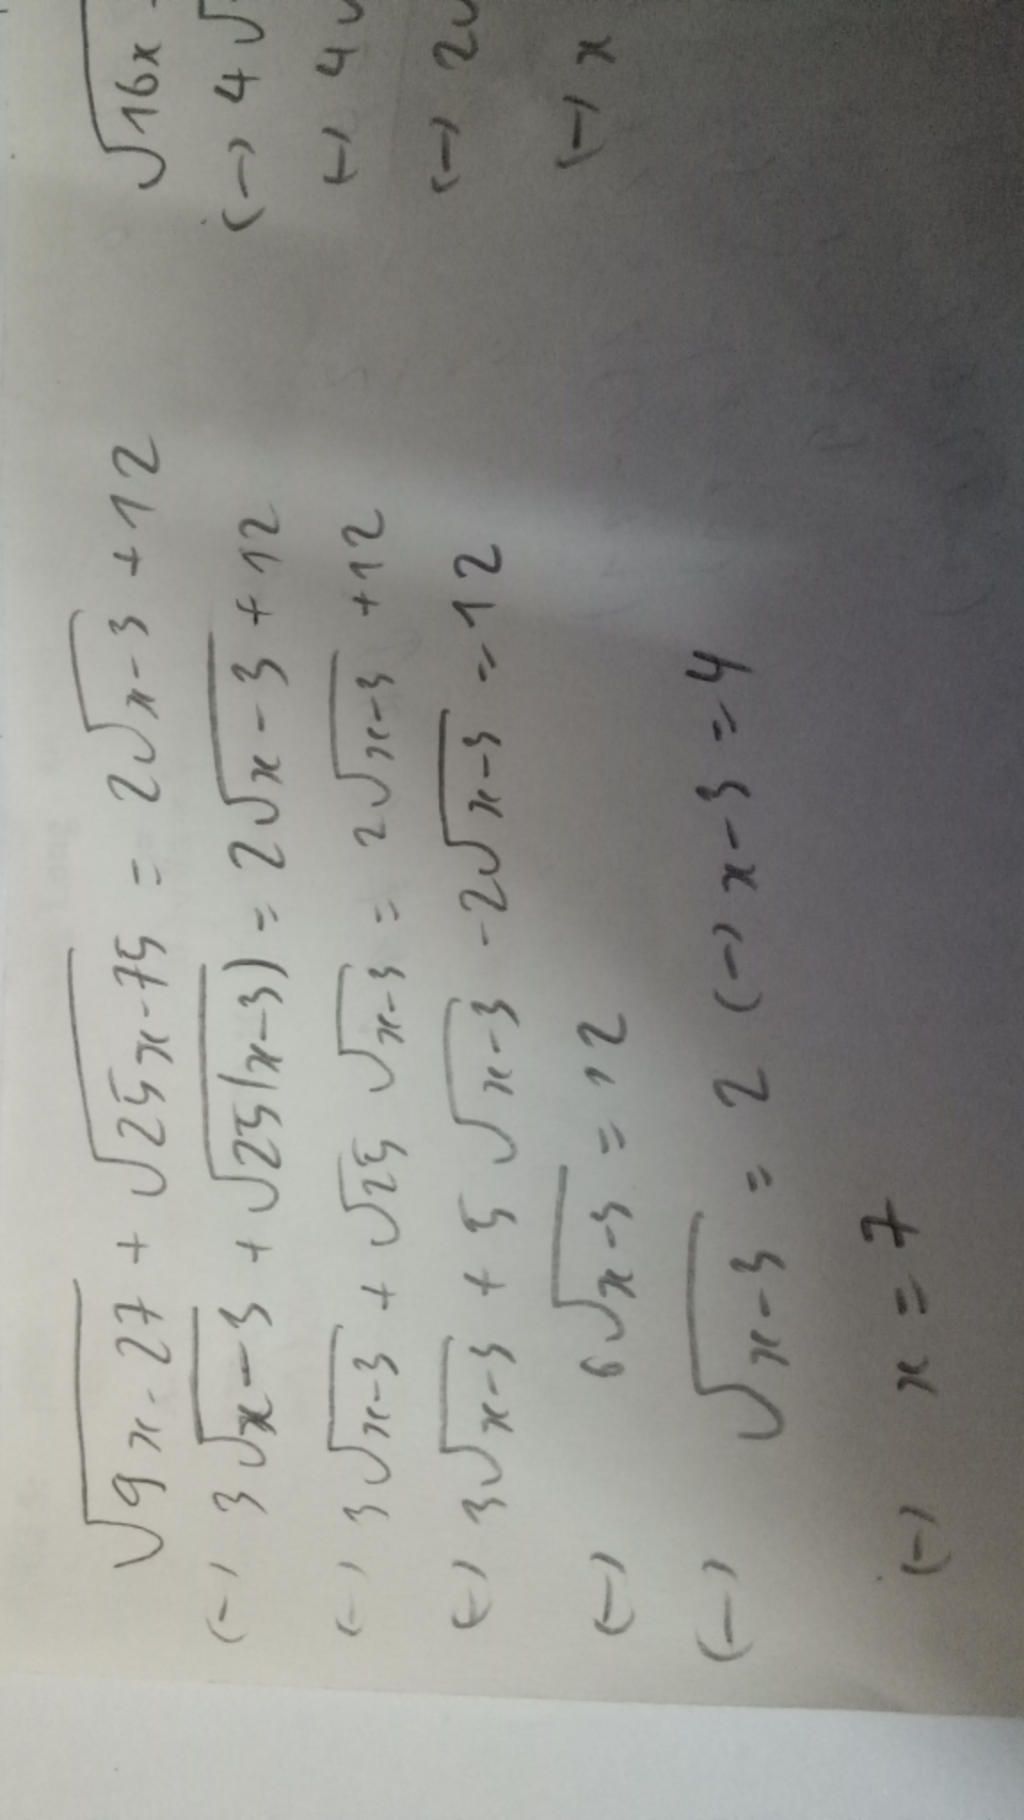 √9x-27 + √25x-75 = 2√x-3 +12
(-) 3√x-3 + √25(x-3) = 2√x-3 +12
(-) 3√x-3 + √25 √x-3 = 2√x-3 +12
(-) 3√x-3 + 5√x-3 -2√x-3 =12
(-) 6√x-3 = 12
(-) √x-3 = 2 (-) x-3=4
(-) x=7
√16x
(-) 4√
(-) 4
(-) 2
(-) x